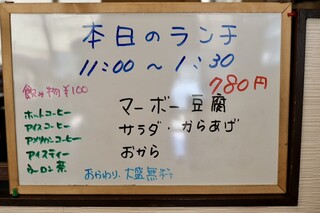 本日のランチ
11:00 〜 1:30
780円
飲み物 ¥100
ホットコーヒー
アイスコーヒー
アメリカンコーヒー
アイスティー
ウーロン茶
マーボー豆腐
サラダ・からあげ
おから
おかわり、大盛無料